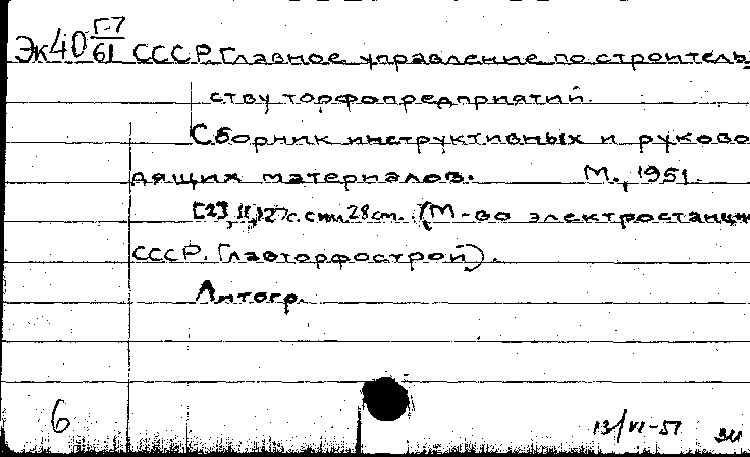 Эк40 Г-7/61 СССР. Главное управление по строитель-
ству торфопредприятий.
Сборник инструктивных и руково
дящих материалов. М., 1951.
28см. (М-во электростанци
СССР. Главторфострой).
Литогр.
6
13/VI-51